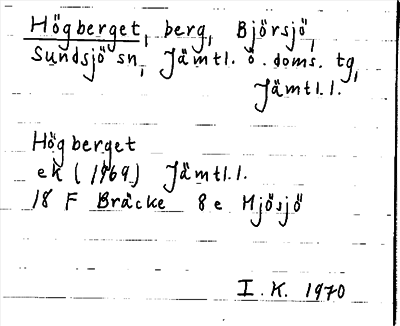 Högberget, berg, Björsjö,
Sundsjö sn, Jämtl. ö. doms. tg,
Jämtl.l.
Högberget
ek (1969) Jämtl.l.
18 F Bräcke 8e Mjösjö
I.K. 1970